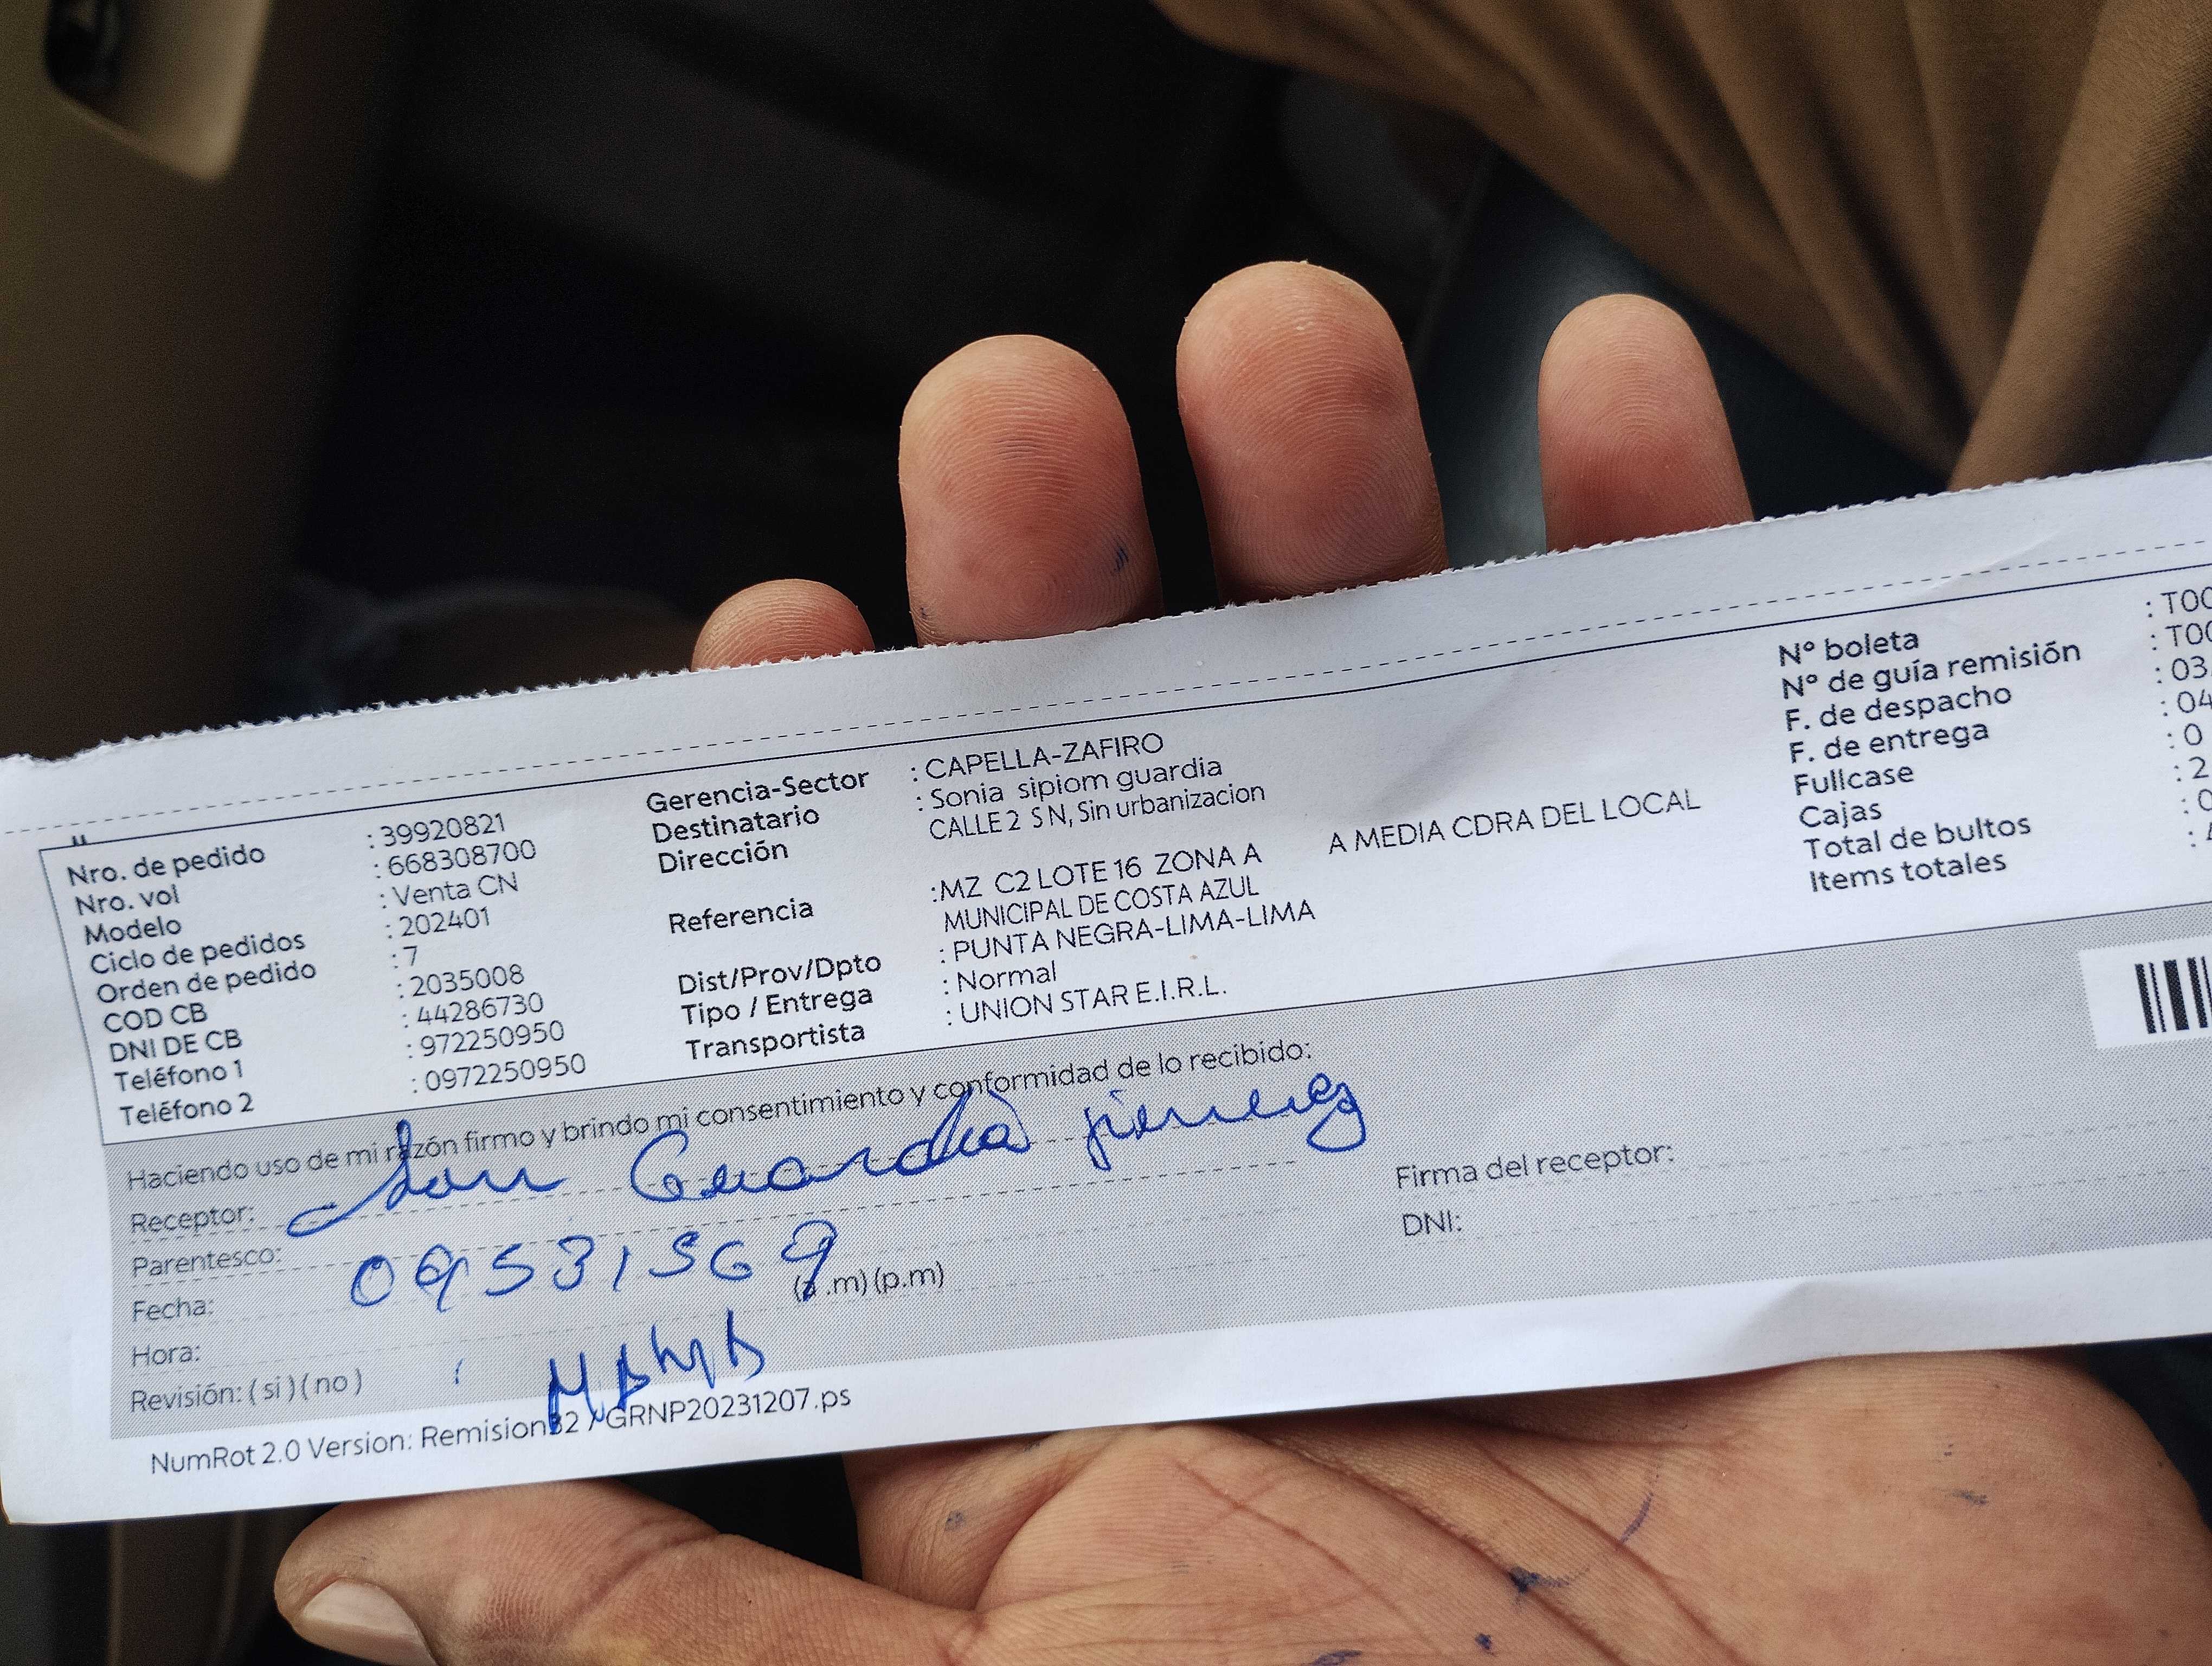 Nro. de pedido : 39920821
Nro. vol : 668308700
Modelo : Venta CN
Ciclo de pedidos : 202401
Orden de pedido : 7
COD CB : 2035008
DNI DE CB : 44286730
Teléfono 1 : 972250950
Teléfono 2 : 0972250950
Gerencia-Sector : CAPELLA-ZAFIRO
Destinatario : Sonia sipiom guardia
Dirección CALLE 2 S N, Sin urbanizacion
Referencia : MZ C2 LOTE 16 ZONA A A MEDIA CDRA DEL LOCAL
MUNICIPAL DE COSTA AZUL
Dist/Prov/Dpto : PUNTA NEGRA-LIMA-LIMA
Tipo / Entrega : Normal
Transportista : UNION STAR E.I.R.L.
N° boleta : T00
N° de guía remisión : T00
F. de despacho : 03
F. de entrega : 04
Fullcase : 0
Cajas : 2
Total de bultos : 0
Items totales :
Haciendo uso de mi razón firmo y brindo mi consentimiento y conformidad de lo recibido:
Receptor: Guardia jimenez
Parentesco:
Fecha: 09531569
(a .m) (p.m)
Hora:
Revisión: ( si ) ( no ) MAMA
Firma del receptor:
DNI:
NumRot 2.0 Version: Remision32 / GRNP20231207.ps